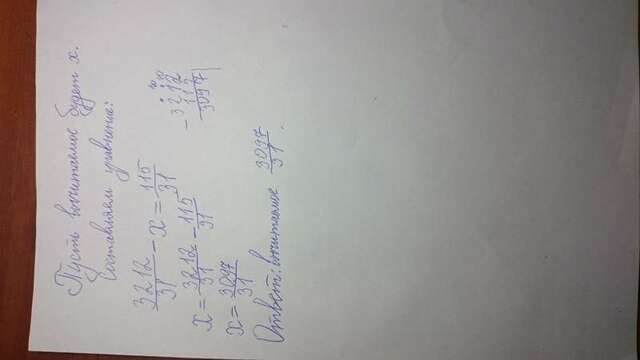 Пусть вычитаемое будет x.
Составляем уравнение:
3212/31 - x = 115/31
x = 3212/31 - 115/31
x = 3097/31
- 3212
115
3097
Ответ: вычитаемое 3097/31.